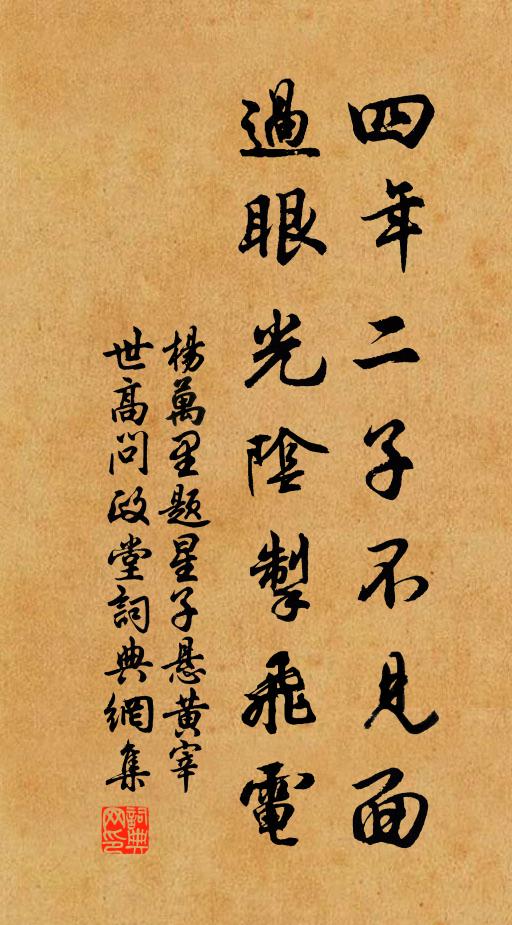 四年二子不見面
過眼光陰掣飛電
楊萬里题星子悬黄宰
世高问政堂詞典網集
詞典网印